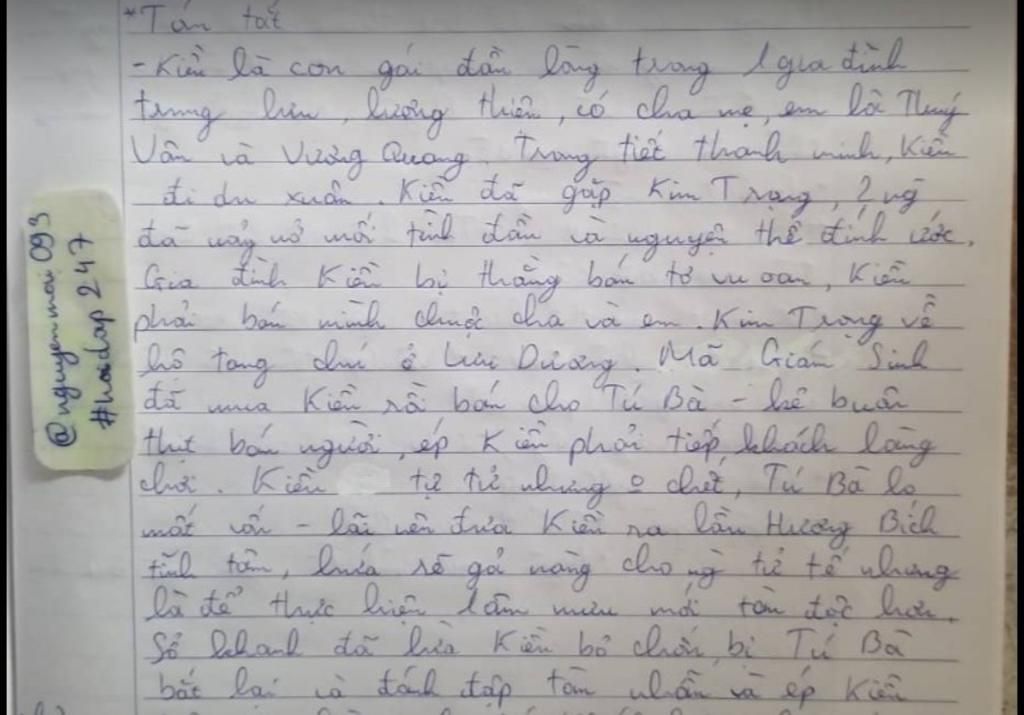 *Tóm tắt
- Kiều là con gái đầu lòng trong 1 gia đình
trung lưu, lương thiện, có cha mẹ, em là Thuý
Vân và Vương Quang. Trong tiết thanh minh, Kiều
đi du xuân. Kiều đã gặp Kim Trọng, 2 ng
đã nảy nở mối tình đầu và nguyện thề đính ước.
Gia đình Kiều bị thằng bán tơ vu oan, Kiều
phải bán mình chuộc cha và em. Kim Trọng về
hộ tang chú ở Liêu Dương. Mã Giám Sinh
đã mua Kiều rồi bán cho Tú Bà - kẻ buôn
thịt bán người, ép Kiều phải tiếp khách làng
chơi. Kiều tự tử nhưng o chết, Tú Bà lo
mất vốn - lãi nên đưa Kiều ra lầu Hương Bích
tĩnh tâm, hứa sẽ gả nàng cho ng tử tế nhưng
là để thực hiện 1 âm mưu mới tàn độc hơn.
Sở Khanh đã lừa Kiều bỏ trốn, bị Tú Bà
bắt lại và đánh đập tàn nhẫn và ép Kiều
@nguyenmai093
#hoidap247